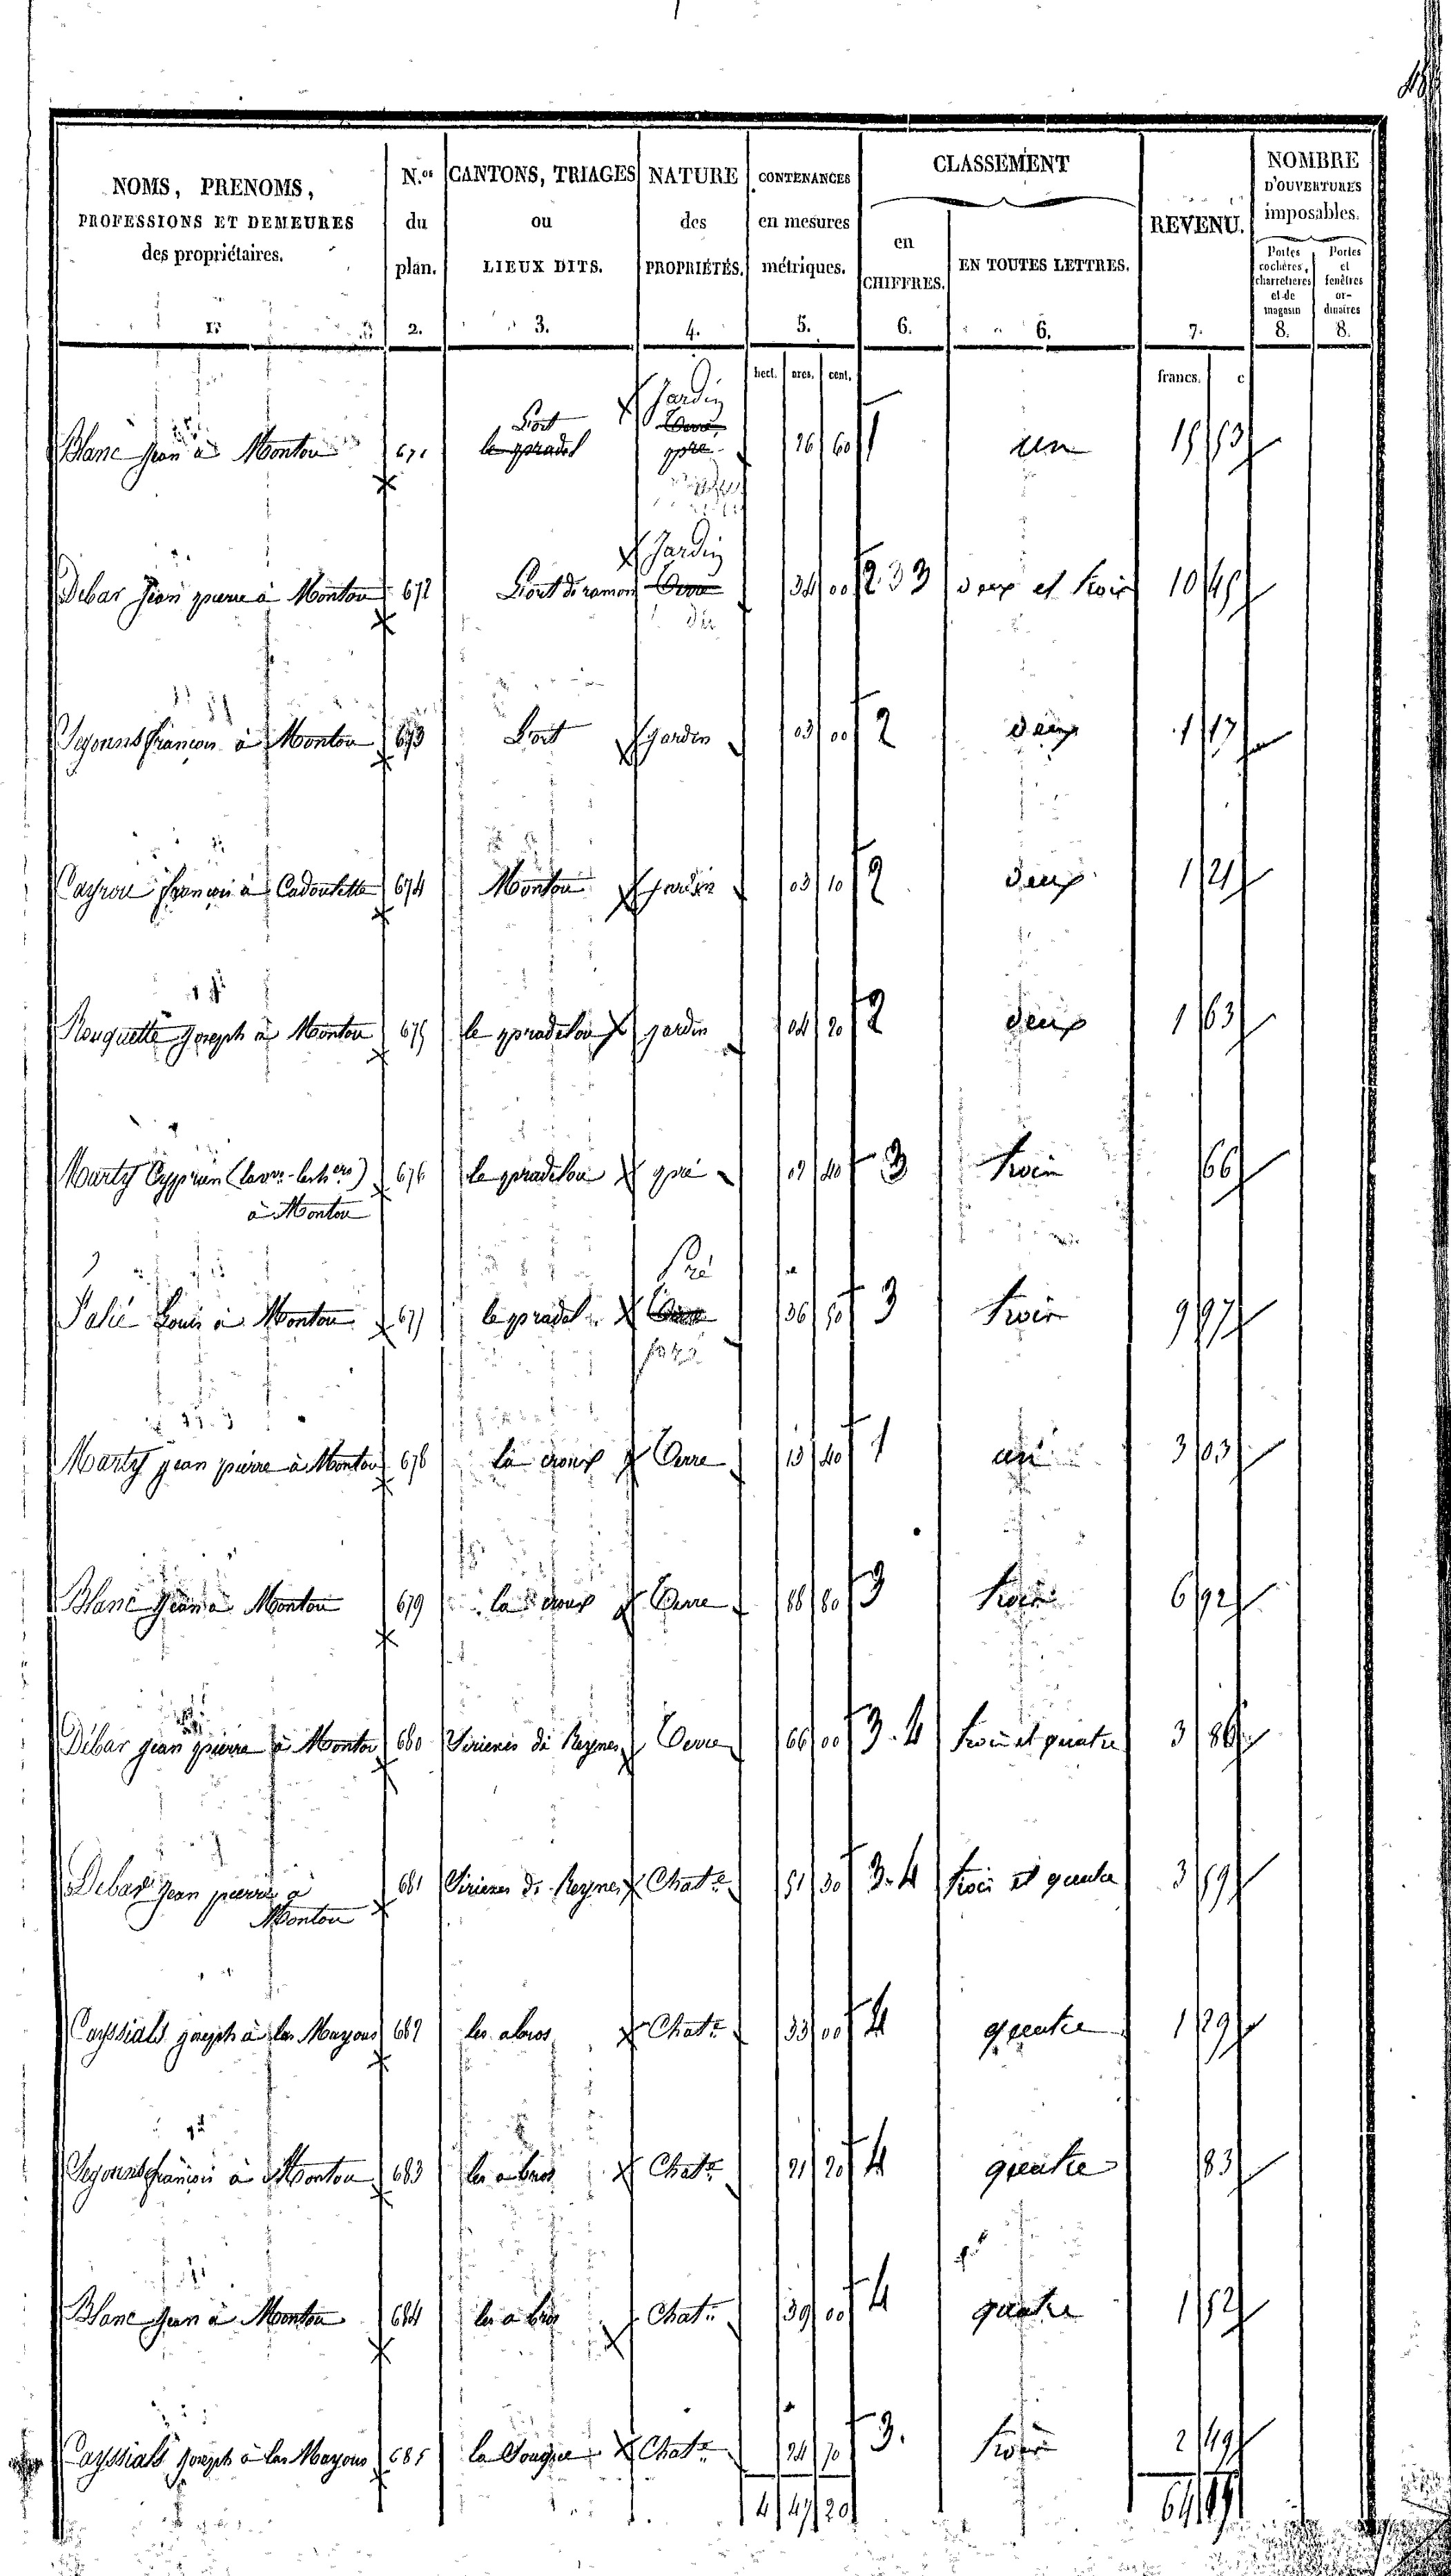 NOMS, PRENOMS, PROFESSIONS ET DEMEURES des propriétaires. 1. | N.os du plan. 2. | CANTONS, TRIAGES ou LIEUX DITS. 3. | NATURE des PROPRIÉTÉS. 4. | CONTENANCES en mesures métriques. 5. | CLASSEMENT en CHIFFRES. 6. | EN TOUTES LETTRES. 6. | REVENU. 7. | NOMBRE D'OUVERTURES imposables. Portes cochères, charretieres et de magasin 8. | Portes et fenêtres ordinaires 8.
hect. ares. cent. francs. c
Blanc jean à Montou 671 Lort le pradel Jardin Terre pre 26 60 1 un 15 53
Debar Jean pierre à Montou 672 Lort de ramon Jardin Terre 34 00 2 3 3 deux et trois 10 45
Segonns françois à Montou 673 Lort jardin 03 00 2 deux 1 17
Cayrou françois à Cadoulette 674 Montou jardin 03 10 2 deux 1 21
Rouquette joseph à Montou 675 le pradelou jardin 04 20 2 deux 1 63
Marty Cyprien à Montou 676 le pradelou pré 40 3 trois 66
Palié Louis à Montou 677 le pradel Pré Terre 36 50 3 trois 9 97
Marty jean pierre à Montou 678 la croux Terre 13 40 1 un 3 03
Blanc jean à Montou 679 la croux Terre 88 80 3 trois 6 92
Debar jean pierre à Montou 680 Sirienes de Reynes Terre 66 00 3. 4 trois et quatre 3 86
Debar jean pierre à Montou 681 Sirienes de Reynes Chatre 51 30 3. 4 trois et quatre 3 59
Cayssials joseph à las Mazous 682 les abros Chatre 33 00 4 quatre 1 29
Segonns françois à Montou 683 les abros Chatre 21 20 4 quatre 83
Blanc jean à Montou 684 les abros Chatre 39 00 4 quatre 1 52
Cayssials joseph à las Mazous 685 la Chatre 24 70 3. trois 2 49
4 47 20